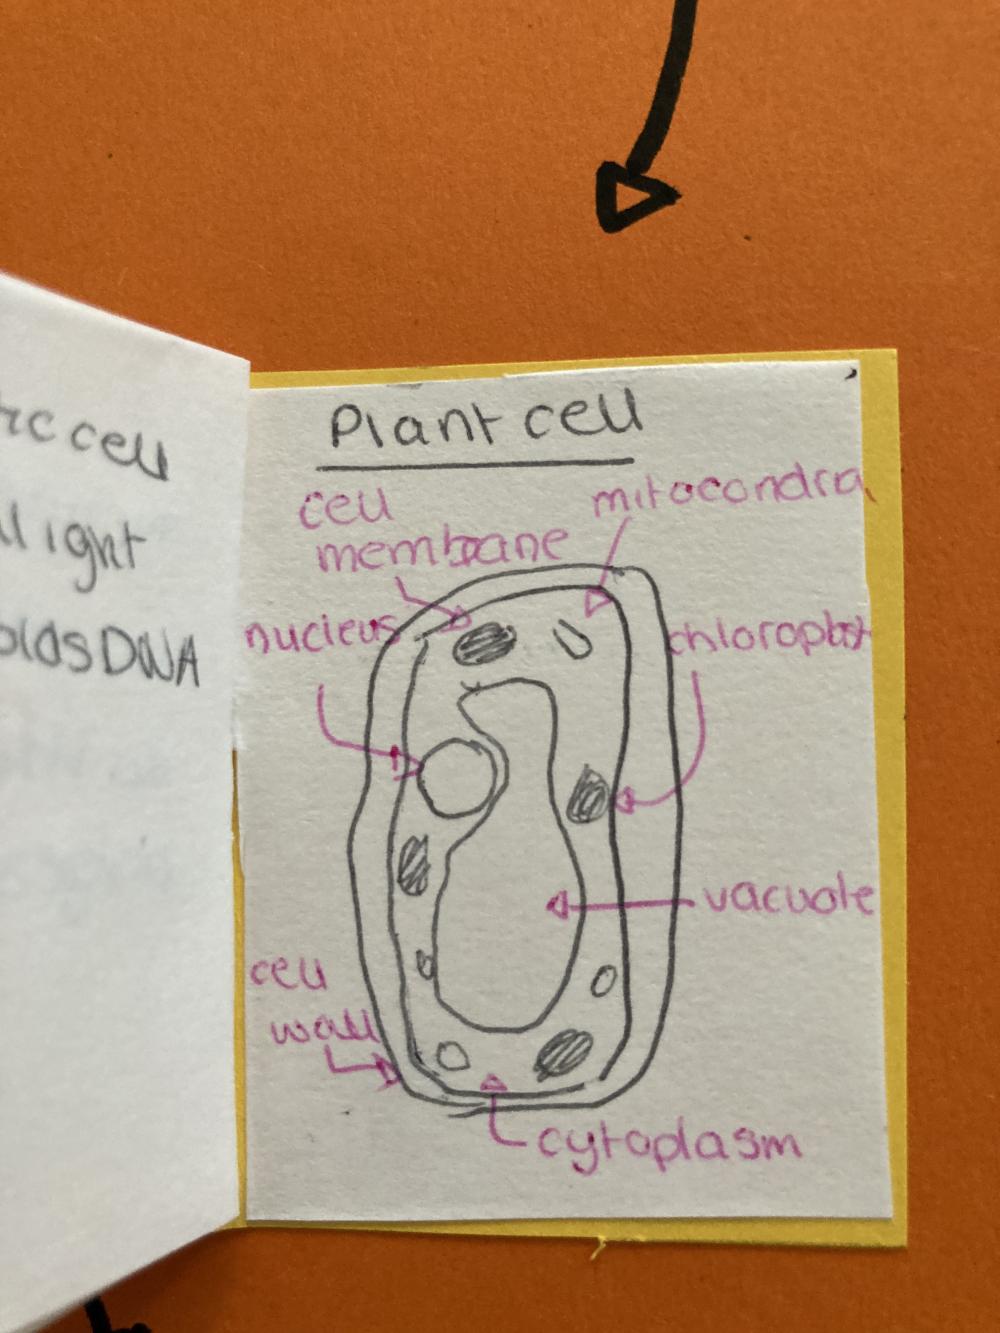 cell
light
DNA
Plant cell
cell
membrane
mitocondria
nucleus
chloroplast
vacuole
cell
wall
cytoplasm